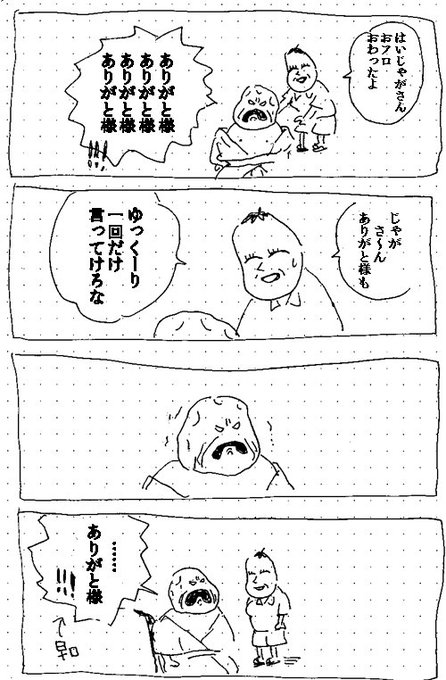 はいじゃがさん
おフロ
おわったよ
ありがと様
ありがと様
ありがと様
ありがと様
!!!
じゃが
さ〜ん
ありがと様も
ゆっくーり
一回だけ
言ってけろな
……
ありがと様
!!!
↑早口